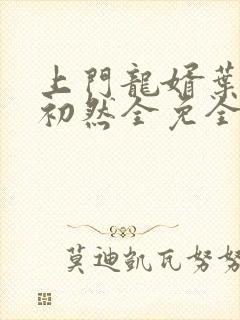 上門龍婿葉
初然全免全
莫迪凱瓦努努